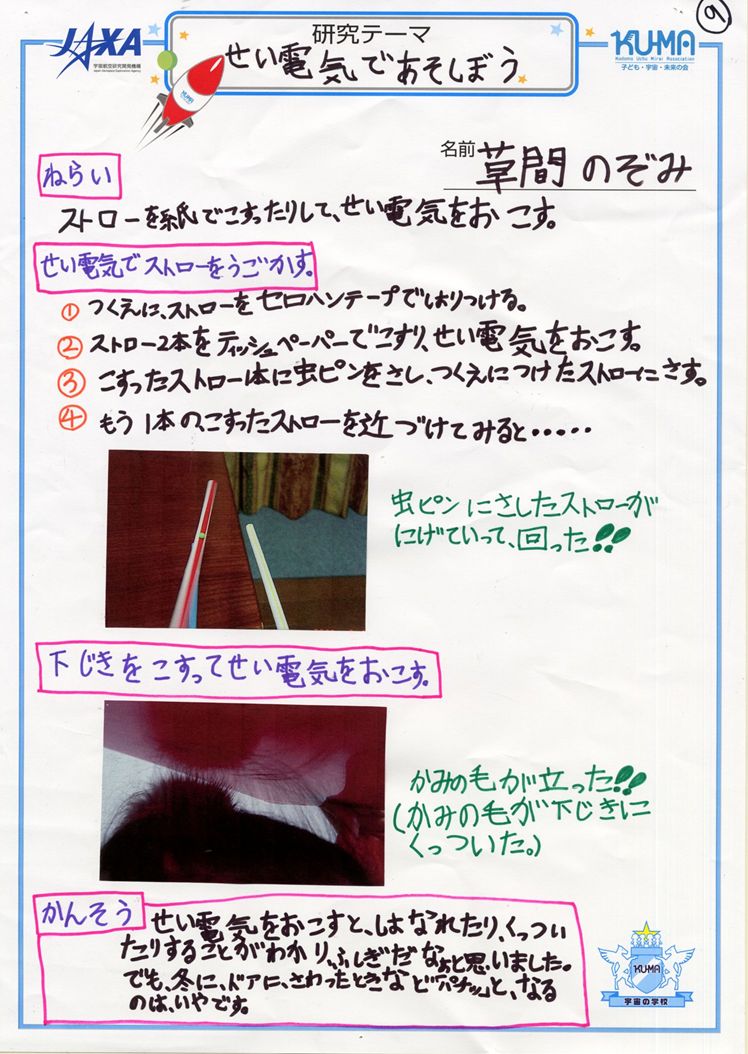 ⑨
JAXA
宇宙航空研究開発機構
Japan Aerospace Exploration Agency
研究テーマ
せい電気であそぼう
KU-MA
Kodomo Uchu Mirai Association
子ども・宇宙・未来の会
KU-MA
名前 草間 のぞみ
ねらい
ストローを紙でこすったりして、せい電気をおこす。
せい電気でストローをうごかす。
① つくえに、ストローをセロハンテープではりつける。
② ストロー2本をティッシュペーパーでこすり、せい電気をおこす。
③ こすったストロー1本に虫ピンをさし、つくえにつけたストローにさす。
④ もう1本の、こすったストローを近づけてみると・・・・・
虫ピンにさしたストローが
にげていって、回った!!
下じきをこすってせい電気をおこす。
かみの毛が立った!!
(かみの毛が下じきに
くっついた。)
かんそう
せい電気をおこすと、はなれたり、くっつい
たりすることがわかり、ふしぎだなぁと思いました。
でも、冬に、ドアに、さわったときなど「パチッ」と、なる
のは、いやです。
KU-MA
宇宙の学校